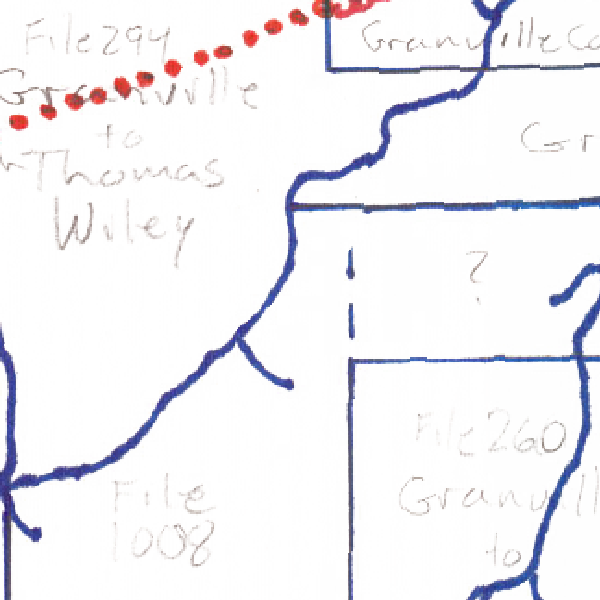 File 294
Granville
to
Thomas
Wiley
Granville Co
Gr
?
File 260
Granvill
to
File
1008